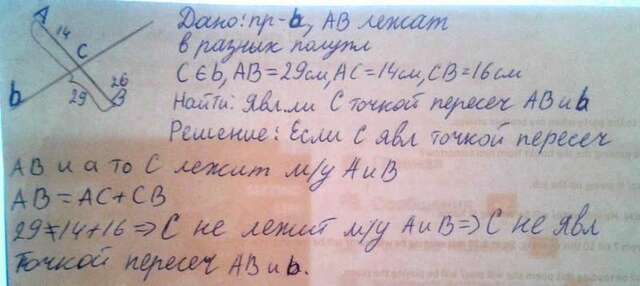 A
14
C
26
29
B
b
Дано: пр-b, AB лежат
в разных полупл
C∈b, AB=29см, AC=14см, CB=16см
Найти: Явл.ли C точкой пересеч AB и b
Решение: Если C явл точкой пересеч
AB и a то C лежит м/у A и B
AB=AC+CB
29≠14+16⇒C не лежит м/у A и B⇒C не явл
точкой пересеч AB и b.